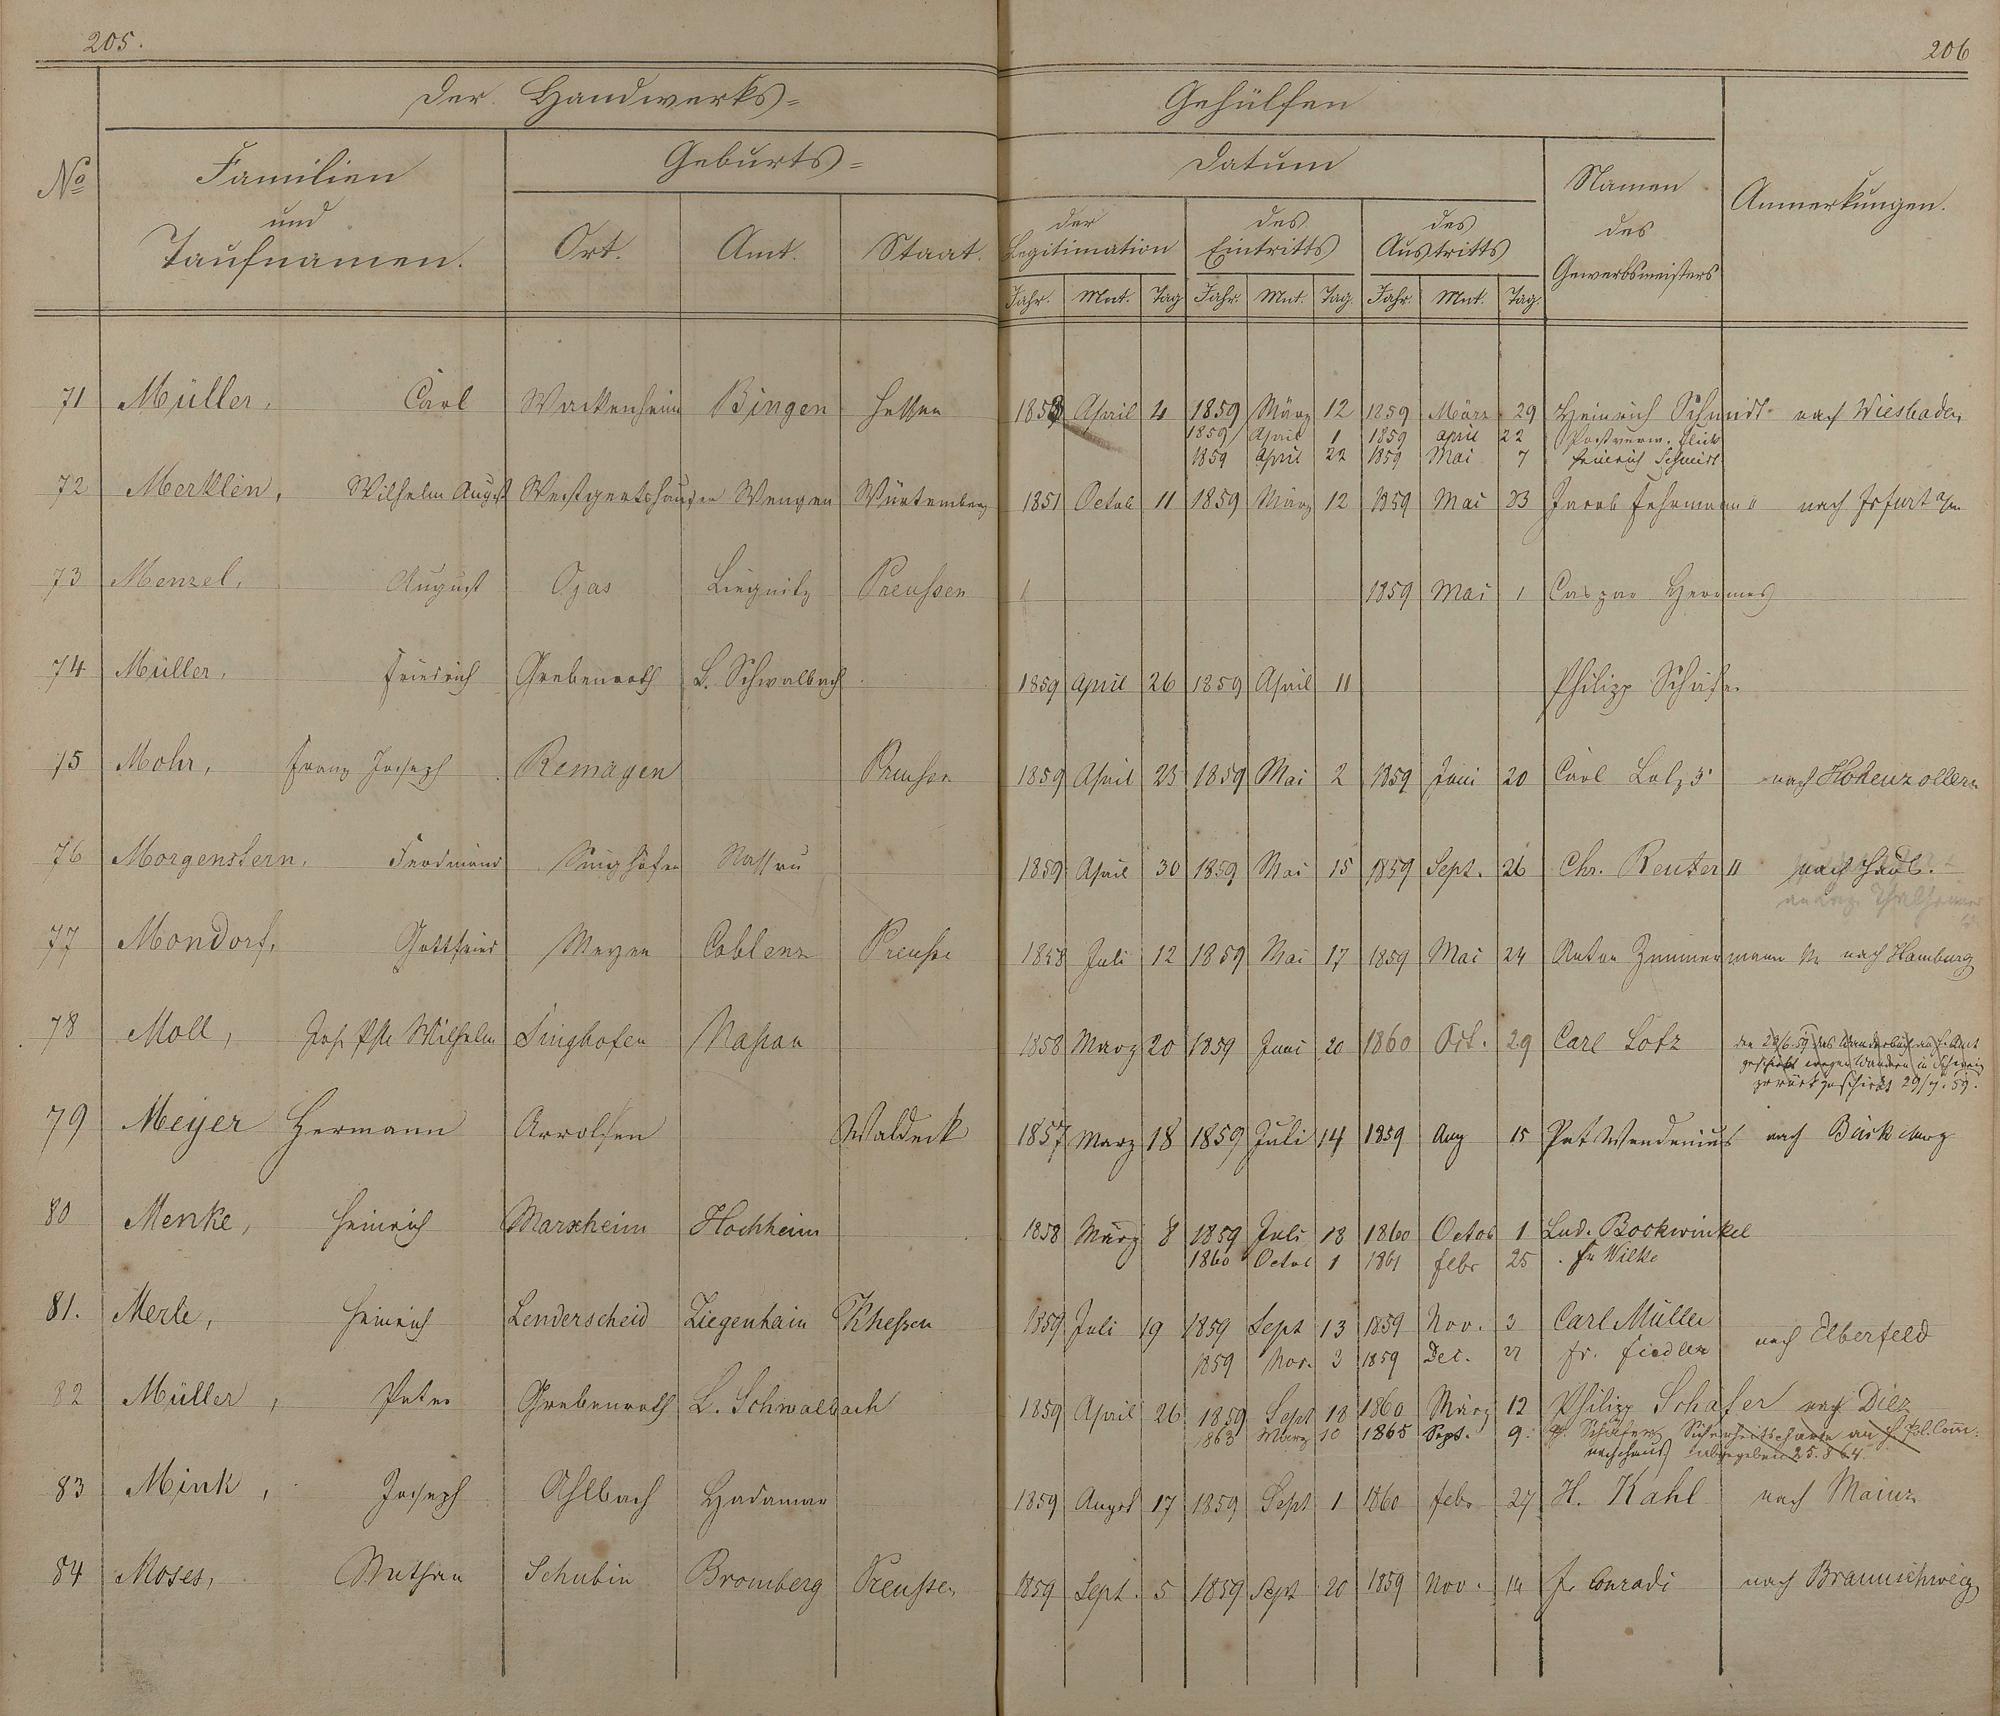 205.
206
Der Handwerks=
Gehülfen
No
Familien
und
Taufnamen.
Geburts=
Ort.
Amt.
Staat.
Datum
der
Legitimation
des
Eintritts
des
Austritts
Jahr. Mnt. Tag Jahr. Mnt. Tag. Jahr. Mnt. Tag.
Namen
des
Gewerbsmeisters
Anmerkungen.
71 Müller, Carl Bingen Hessen 1858 April 4 1859 März 12 1859 März 29 Heinrich Schmidt nach Wiesbaden
1859 April 1 1859 April 22
1859 April 22 1859 Mai 7 Heinrich Schmidt
72 Merklen, Wilhelm August Würtemberg 1851 Octob 11 1859 März 12 1859 Mai 23 Jacob Fehrmann nach
73 Menzel, August Ojas Liegnitz Preußen 1859 Mai 1 Caspar Hermes
74 Müller, Friedrich Grebenroth L. Schwalbach 1859 April 26 1859 April 11 Philipp Schäfer
75 Mohr, Franz Joseph Remagen Preußen 1859 April 23 1859 Mai 2 1859 Juni 20 Carl nach Hohenzollern
76 Morgenstern, Ferdinand Singhofen Nassau 1859 April 30 1859 Mai 15 1859 Sept. 26 Chr. Reuter II nach
77 Mondorf, Gottfried Mayen Coblenz Preuße 1858 Juli 12 1859 Mai 17 1859 Mai 24 Anton Zimmermann nach Hamburg
78 Moll, Wilhelm Singhofen Naßau 1858 März 20 1859 Juni 20 1860 Oct. 29 Carl Lotz den das Wanderbuch Amt
geschickt wegen Wandern in Schweiz
zurückgeschickt 29/7. 59.
79 Meyer Hermann Arrolsen Waldeck 1857 März 18 1859 Juli 14 1859 Aug 15 Pet nach Bückeburg
80 Menke, Heinrich Marxheim Hochheim 1858 März 8 1859 Juli 18 1860 Octob 1 Lud. Bockwinkel
1860 Octob 1 1861 febr 25 Fr Wilke
81. Merle, Heinrich Lenderscheid Ziegenhain Khessen 1859 Juli 19 1859 Sept 13 1859 Nov. 3 Carl Müller
1859 Nov. 3 1859 Dec. 27 Fr. Fiedler nach Elberfeld
82 Müller, Peter Grebenroth L. Schwalbach 1859 April 26 1859 Sept 18 1860 März 12 Philipp Schäfer nach Diez
1863 März 10 1865 Sept. 9. Ph. Schäfer Sicherheitscharte an Pol. Com.
abgegeben 25.8 64.
83 Mink, Joseph Ahlbach Hadamar 1859 August 17 1859 Sept 1 1860 febr 27 H. Kahl nach Mainz
84 Moses, Nathan Schubin Bromberg Preußen 1859 Sept. 5 1859 Sept 20 1859 Nov. 14 Fr Conradi nach Braunschweig